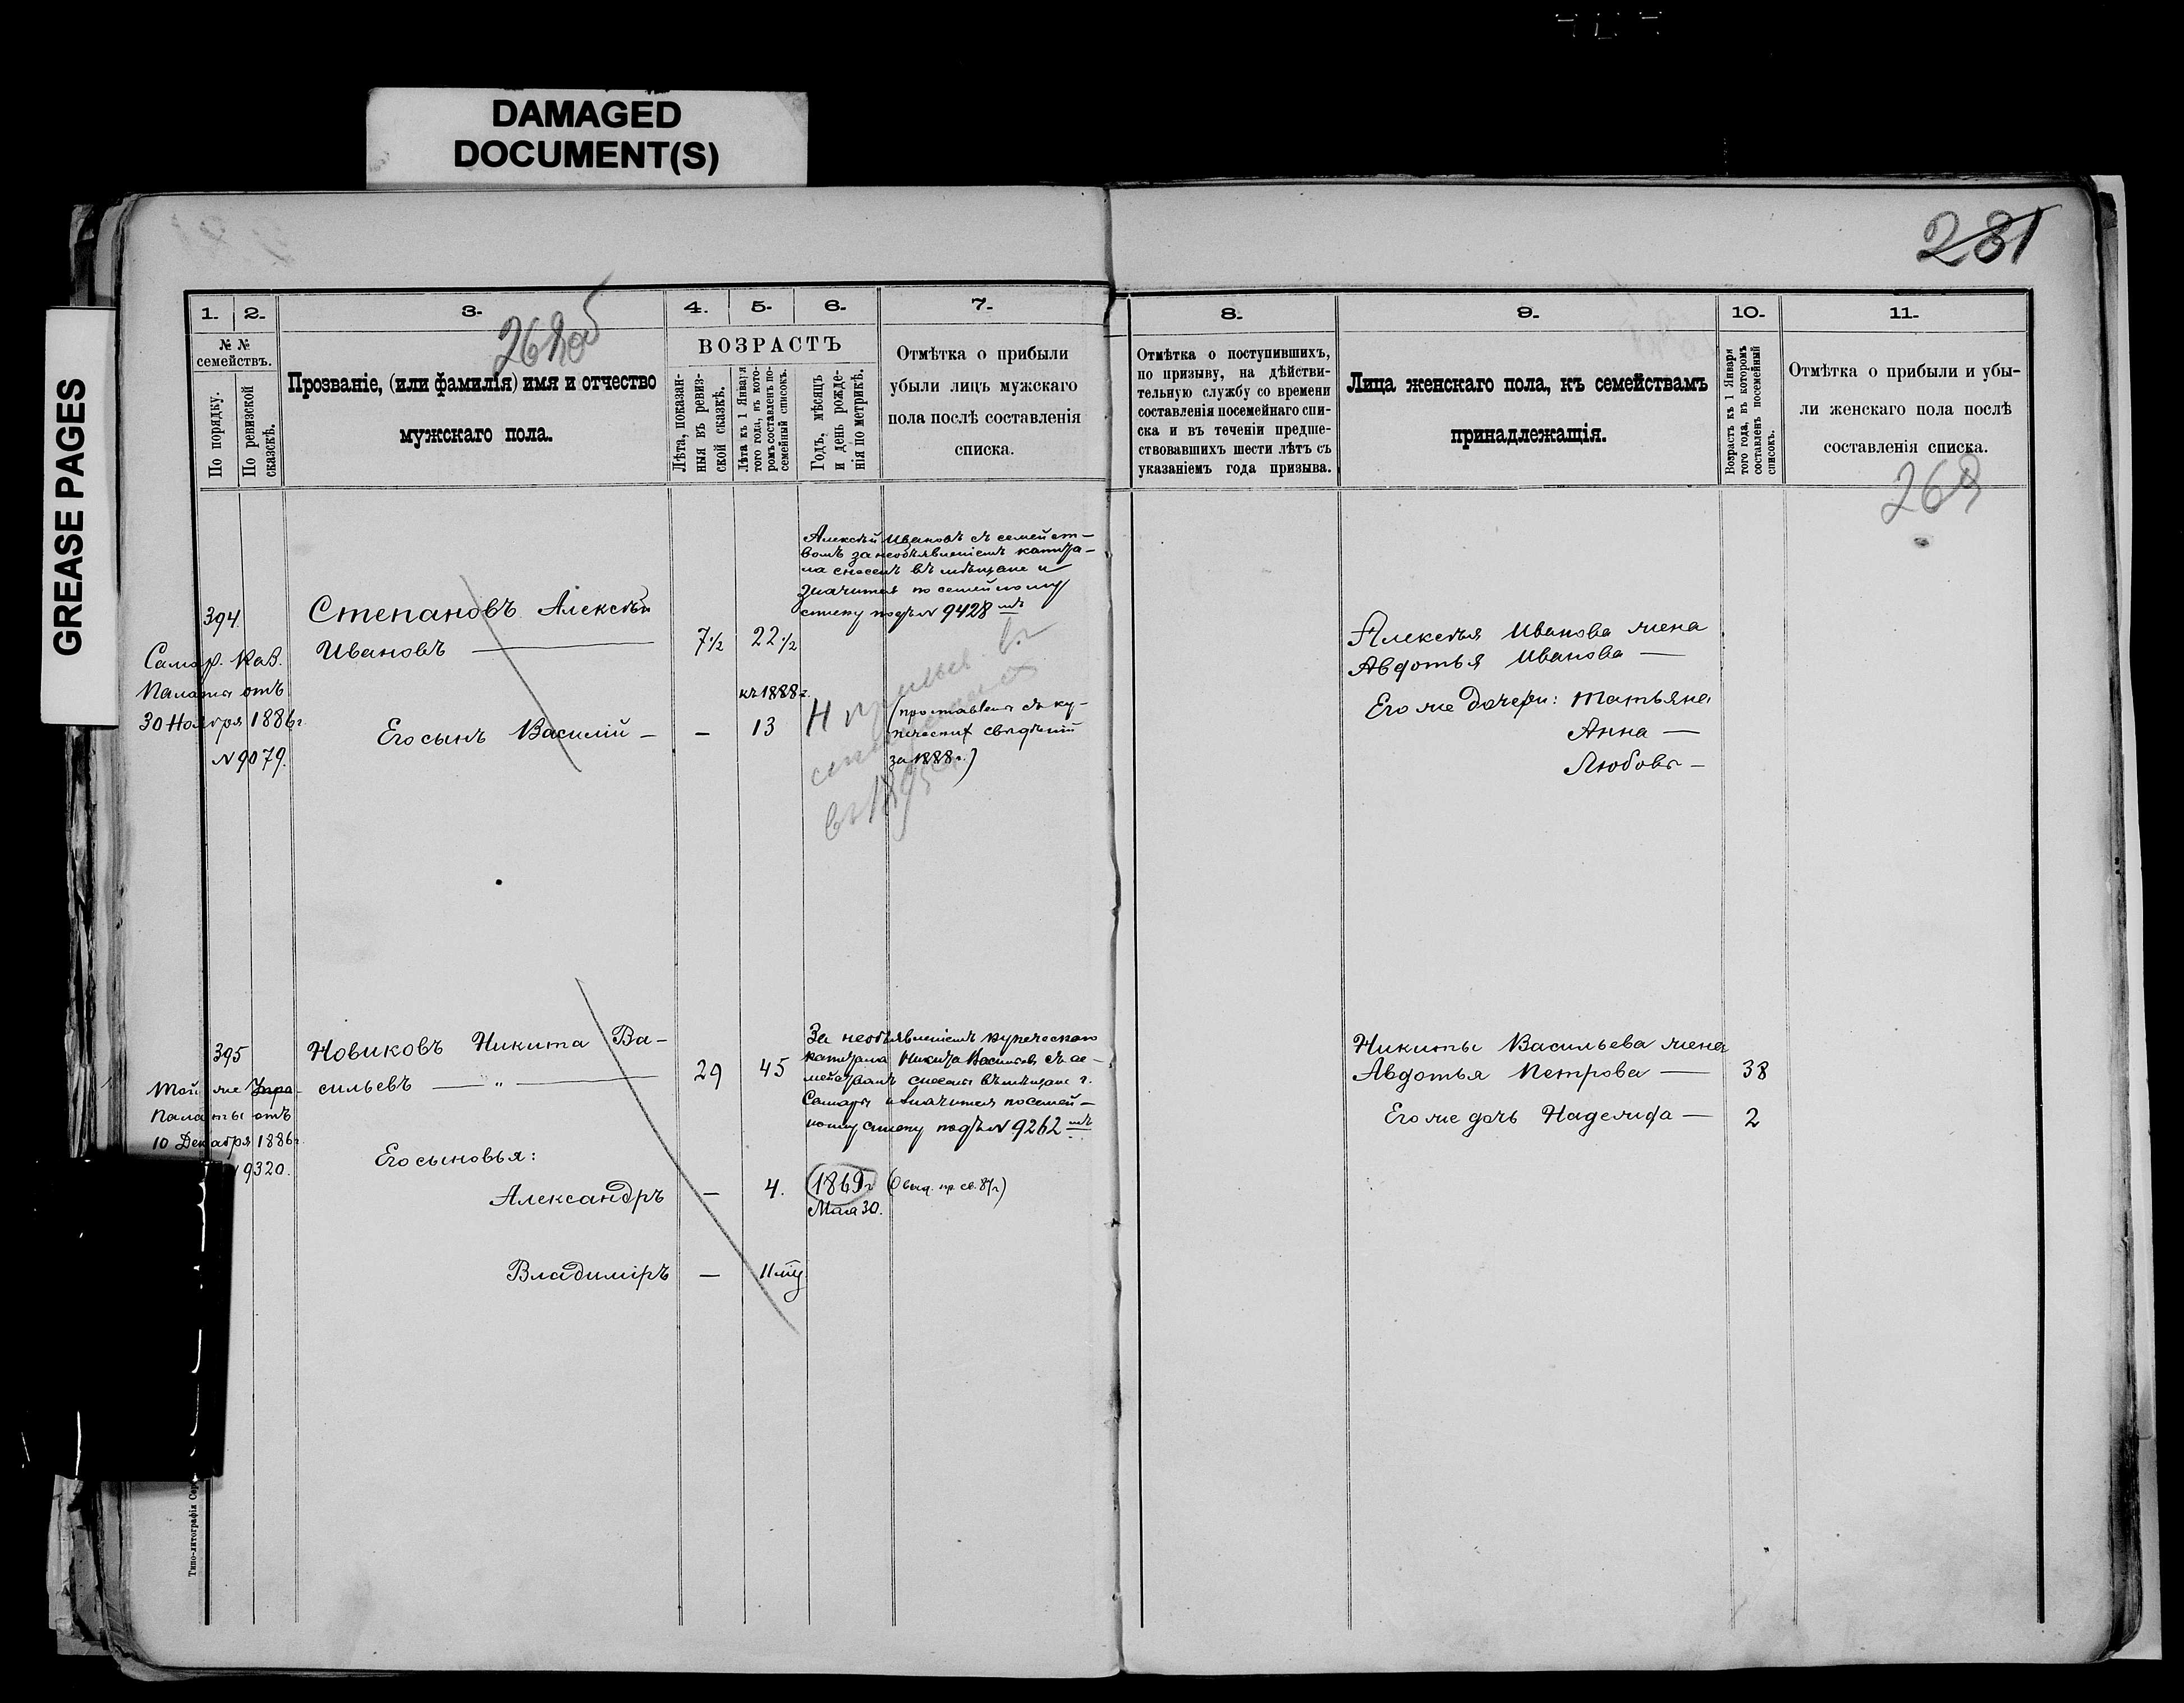 DAMAGED
DOCUMENT(S)
GREASE PAGES
281
268об
1.
2.
3.
4.
5.
6.
7.
№ №
семействъ.
По порядку.
По ревизской
сказкѣ.
Прозваніе, (или фамилія) имя и отчество
мужскаго пола.
ВОЗРАСТЪ
Лѣта, показан-
ныя въ ревиз-
ской сказкѣ.
Лѣта къ 1 Января
того года, въ кото-
ромъ составленъ по-
семейный списокъ.
Годъ, мѣсяцъ
и день рожде-
нія по метрикѣ.
Отмѣтка о прибыли
убыли лицъ мужскаго
пола послѣ составленія
списка.
Алексѣй Ивановъ съ семейст-
вомъ за необъявленіемъ капита-
ла снесенъ въ мѣщане и
значится по семейному
списку подъ № 9428мъ
394.
Степановъ Алексѣй
Ивановъ —
7½
22½
Самар. Каз.
Палаты отъ
30 Ноября 1886г.
№ 9079.
къ 1888г.
Его сынъ Василій —
—
13
(проставлены съ ку-
за 1888г.)
395
Новиковъ Никита Ва-
сильевъ — " —
29
45
За необъявленіемъ купеческаго
капитала Никита Васильевъ съ се-
мействомъ снесены въ мѣщане г.
Самары и значится по семей-
ному списку подъ № 9262мъ
Той же
Палаты отъ
10 Декабря 1886г.
9320.
Его сыновья:
Александръ
—
4.
1869г.
Мая 30.
Владиміръ
—
11 мѣ
Типо-литографія Сер
8.
9.
10.
11.
Отмѣтка о поступившихъ,
по призыву, на дѣйстви-
тельную службу со времени
составленія посемейнаго спи-
ска и въ теченіи предше-
ствовавшихъ шести лѣтъ съ
указаніемъ года призыва.
Лица женскаго пола, къ семействамъ
принадлежащія.
Возрастъ къ 1 Января
того года, въ которомъ
составленъ посемейный
списокъ.
Отмѣтка о прибыли и убы-
ли женскаго пола послѣ
составленія списка.
268
Алексѣя Иванова жена
Авдотья Иванова —
Его же дочери: Татьяна
Анна —
Любовь —
Никиты Васильева жена
Авдотья Петрова —
38
Его же дочь Надежда —
2